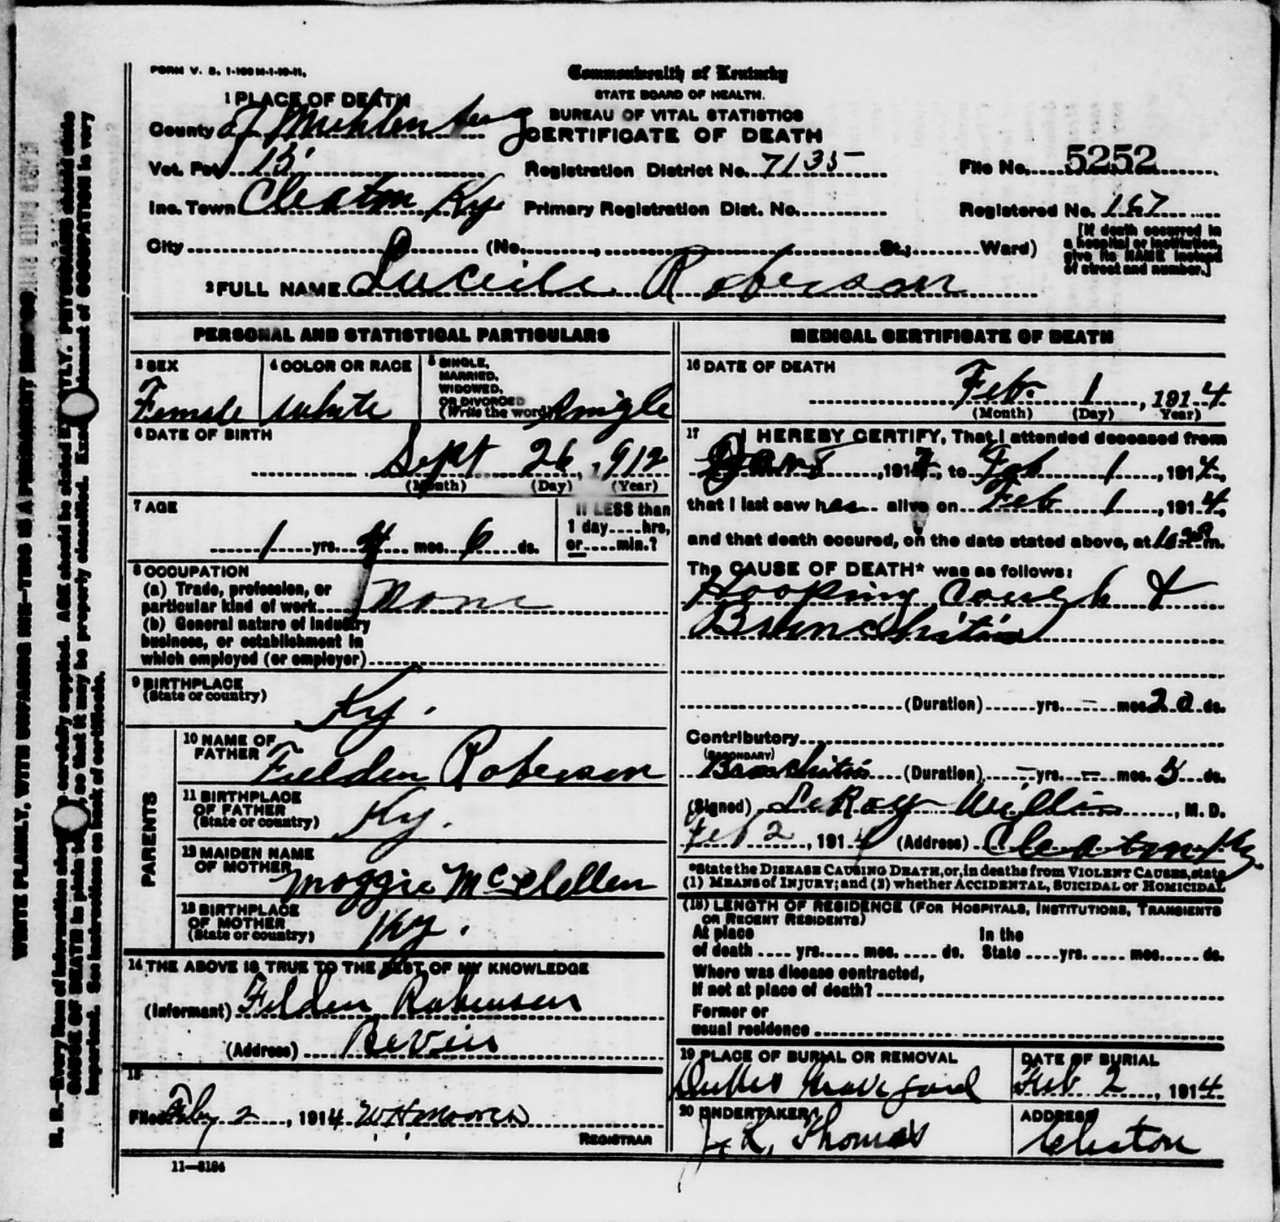 FORM V. S. 1-100M-1-10-11.
Commonwealth of Kentucky
STATE BOARD OF HEALTH.
BUREAU OF VITAL STATISTICS
CERTIFICATE OF DEATH
1 PLACE OF DEATH
County of Muhlenberg
Vot. Pct 15
Registration District No. 7135
File No. 5252
Inc. Town Cleaton Ky
Primary Registration Dist. No.
Registered No. 167
City (No. , St.; Ward)
[If death occurred in
a hospital or institution,
give its NAME instead
of street and number.]
2 FULL NAME Lucile Roberson
PERSONAL AND STATISTICAL PARTICULARS
3 SEX
Female
4 COLOR OR RACE
White
5 SINGLE,
MARRIED,
WIDOWED,
OR DIVORCED
(Write the word) Single
6 DATE OF BIRTH
Sept 26, 1912
(Month) (Day) (Year)
7 AGE
1 yrs. 4 mos. 6 ds.
If LESS than
1 day hrs,
or min.?
8 OCCUPATION
(a) Trade, profession, or
particular kind of work None
(b) General nature of industry
business, or establishment in
which employed (or employer)
9 BIRTHPLACE
(State or country)
Ky.
PARENTS
10 NAME OF
FATHER
Fielden Roberson
11 BIRTHPLACE
OF FATHER
(State or country)
Ky.
12 MAIDEN NAME
OF MOTHER
Moggie McClellen
13 BIRTHPLACE
OF MOTHER
(State or country)
Ky.
14 THE ABOVE IS TRUE TO THE BEST OF MY KNOWLEDGE
(Informant) Felden Roberson
(Address) Bevier
15
Filed Feby 2, 1914 W H Moore
REGISTRAR
11—3184
MEDICAL CERTIFICATE OF DEATH
16 DATE OF DEATH
Feb. 1, 1914
(Month) (Day) (Year)
17 I HEREBY CERTIFY, That I attended deceased from
, 1914, to Feb 1, 1914,
that I last saw her alive on Feb 1, 1914,
and that death occured, on the date stated above, at m.
The CAUSE OF DEATH* was as follows:
Hooping Cough &
Brunchitis
(Duration) yrs. – mos. 20 ds.
Contributory
(SECONDARY)
Bronchitis (Duration) – yrs. – mos. 5 ds.
(Signed) LeRoy Willis, M. D.
Feb 2, 1914 (Address) Cleaton Ky.
*State the DISEASE CAUSING DEATH, or, in deaths from VIOLENT CAUSES, state
(1) MEANS of INJURY; and (2) whether ACCIDENTAL, SUICIDAL or HOMICIDAL
(18) LENGTH OF RESIDENCE (FOR HOSPITALS, INSTITUTIONS, TRANSIENTS
OR RECENT RESIDENTS)
At place
of death yrs. mos. ds.
In the
State yrs. mos. ds.
Where was disease contracted,
If not at place of death?
Former or
usual residence
19 PLACE OF BURIAL OR REMOVAL
Graveyard
DATE OF BURIAL
Feb. 2, 1914
20 UNDERTAKER
J. R. Thomas
ADDRESS
Cleaton
WRITE PLAINLY, WITH UNFADING INK—THIS IS A PERMANENT
N. B.—Every item of information should carefully supplied. AGE should be stated EXACTLY. PHYSICIANS should state
CAUSE OF DEATH in plain so that it may be properly classified. Exact statement of OCCUPATION is very
important. See instructions on back of certificate.